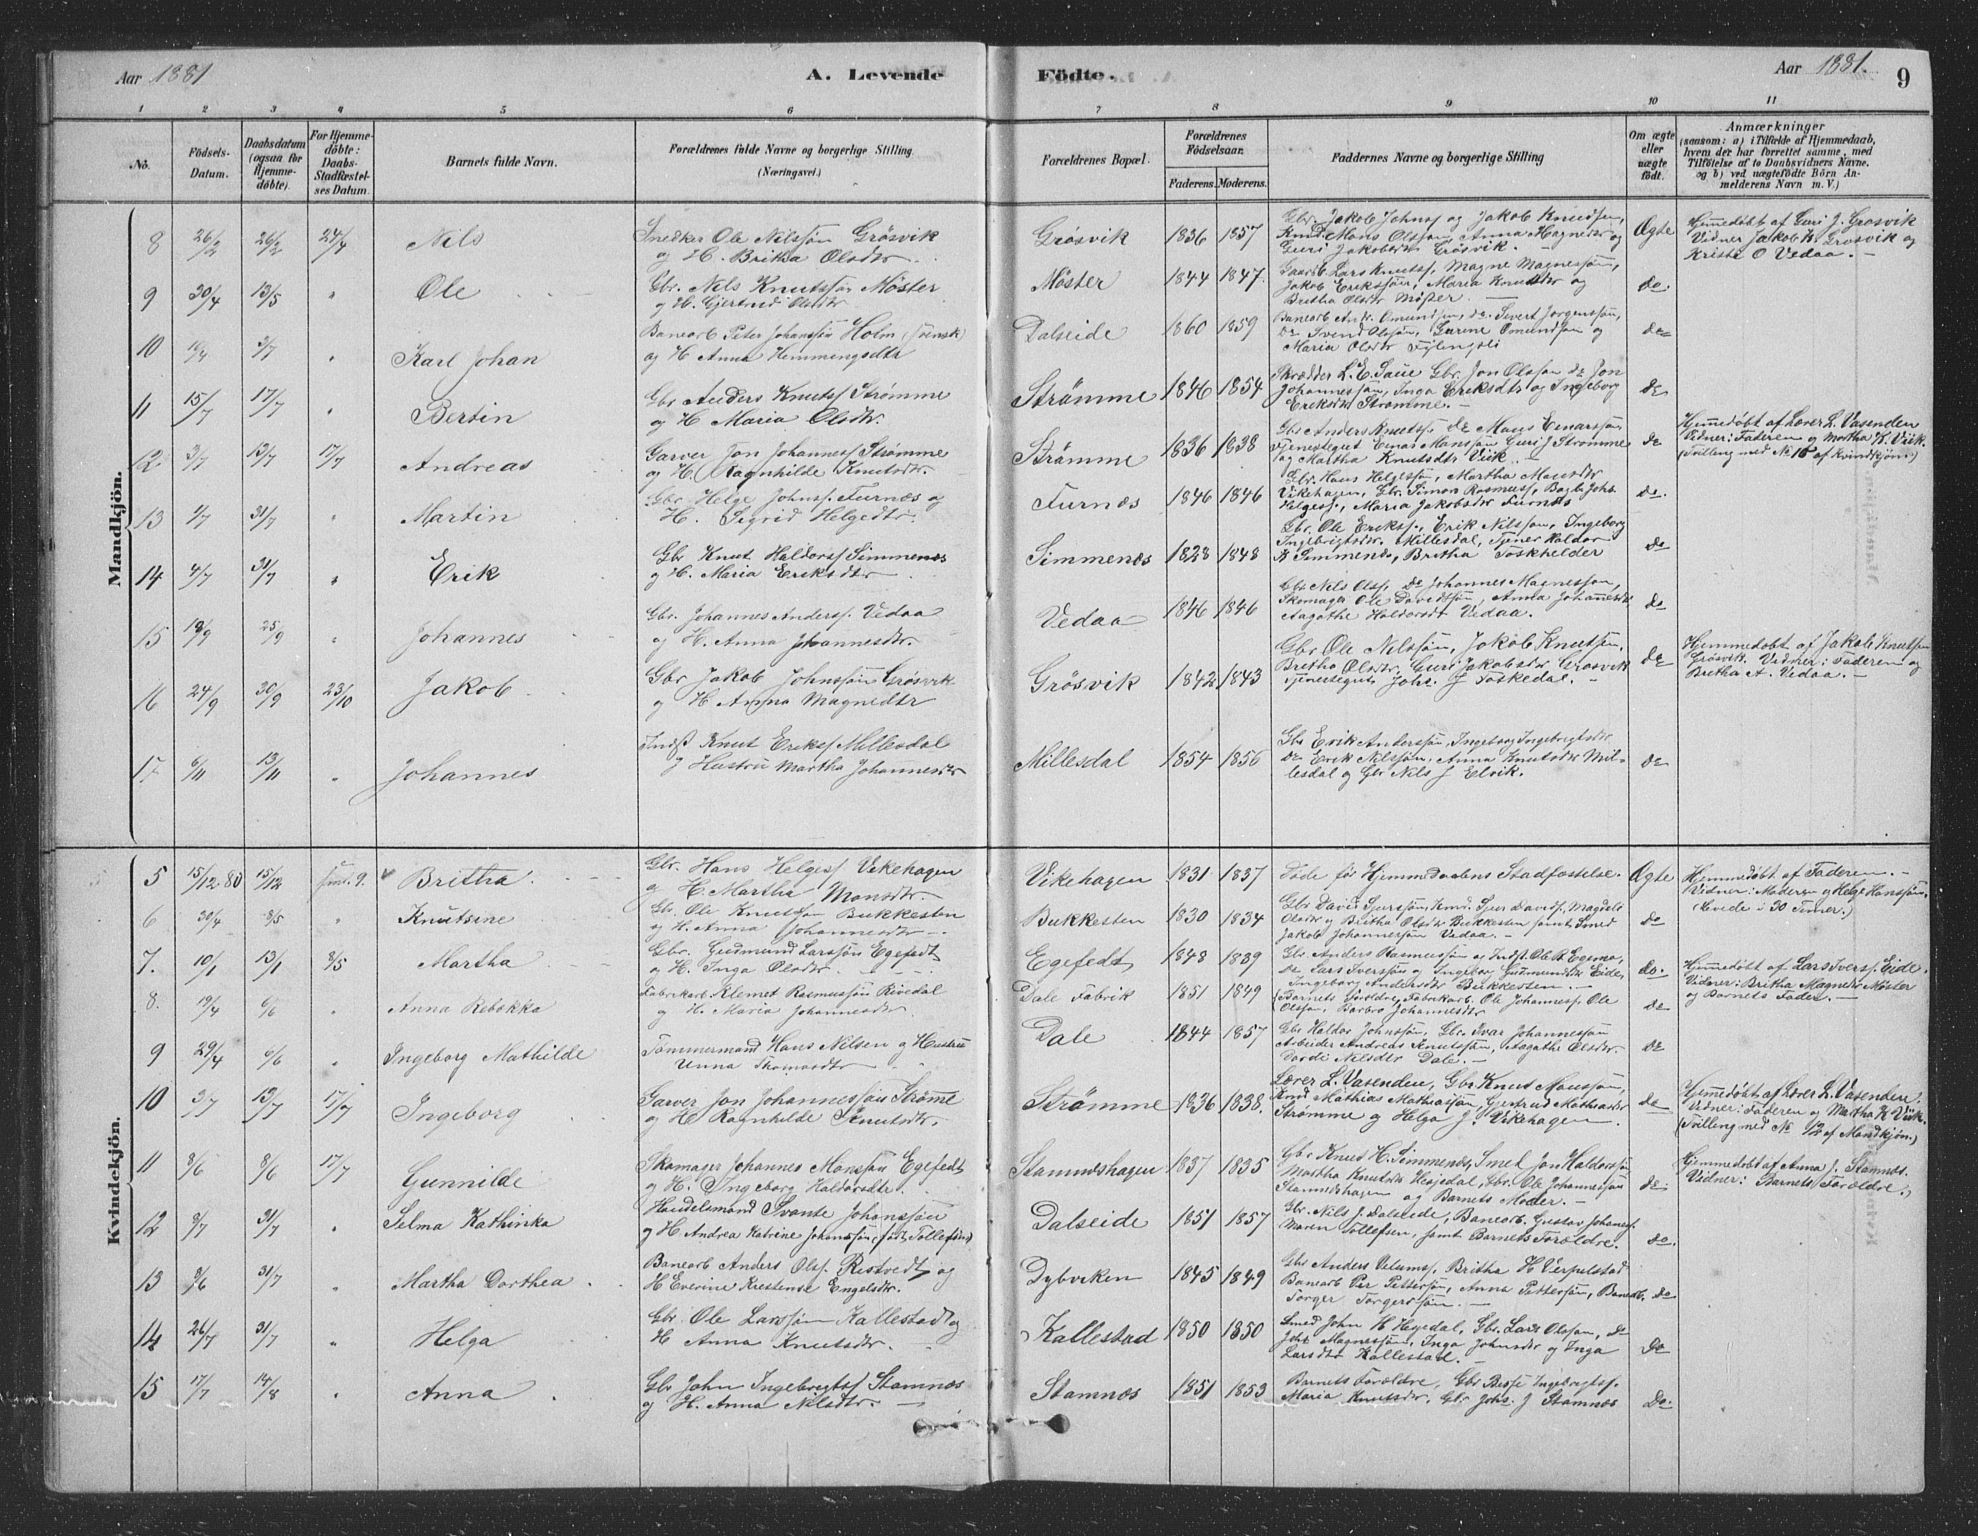 Aar 1881
A. Levende
Födte.
Aar 1881.
9
1 2 3 4 5 6 7 8 9 10 11
No.
Födsels-Datum.
Daabsdatum (ogsaa for Hjemme-döbte).
For Hjemme-döbte: Daabs-Stadfæstel-ses Datum.
Barnets fulde Navn.
Forældrenes fulde Navne og borgerlige Stilling (Næringsvei.)
Forældrenes Bopæl.
Forældrenes Födselsaar.
Faderens. Moderens.
Faddernes Navne og borgerlige Stilling
Om ægte eller uægte födt.
Anmærkninger
(saasom: a) i Tilfælde af Hjemmedaab, hvem der har forrettet samme, med Tilföielse af to Daabsvidners Navne, og b) ved uægtefödte Börn An-melderens Navn m. V.)
Mandkjön.
8 26/2 26/2 24/4 Nils
Snedker Ole Nilssön Grösvik
og H. Britha Olsdtr.
Grösvik 1836 1857
Gbr. Jakob Johnss og Jakob Knudsen,
Knud Mons Olsson Anna Magnedtr og
Guri Jakobsdtr Grösvik.
Ægte
Hjemmedöbt af Guri J. Grosvik
Vidner Jakob K. Grosvik og
Krista O Vedaa. -
9 30/4 13/5 " Ole
Gbr. Nils Knutssön Möster
og H. Gjertrud Olsdtr
Möster 1844 1847
Gaardb Lars Knutss, Magne Magnessön,
Jakob Erikssön, Maria Knutsdtr og
Britha Olsdtr Möster
do.
10 3/7 " Karl Johan
Banearb Peter Johanssön Holm (Svensk)
og H Anna Hemmengsdtr
Dalseide 1860 1859
Banearb Antr. Omundsen, do. Sivert Jorgenssön,
do Svend Olssön, Gurine Omundsen og
Maria Olsdtr Fylingsli
do
11 15/7 17/7 " Bertin
Gbr Anders Knutss Strömme
og H Maria Olsdtr.
Strömme 1846 1854
Skrædder L. E. Saue Gbr. Jon Olsson do Jon
Johannessön, Inga Eriksdtr og Ingeborg
Eriksdtr Strömme. -
do
12 3/7 13/7 17/7 Andreas
Garver Jon Johanness Strömme
og H. Ragnhilde Knutsdtr.
Strömme 1836 1838
Gbr Anders Knutss. do Mons Einarssön
Tjenestegut Einar Monssön Guri J Strömme
og Martha Knutsdtr Viik. -
do
Hjemmedöbt af Lærer L. Vasenden
Vidner: Faderen og Martha K. Viik.
(Tvilling med No 10 af Kvindkjön.)
13 4/7 31/7 " Martin
Gbr Helge Johnss. Furnæs og
H. Sigrid Helgedtr.
Furnæs 1846 1846
Gbr. Hans Helgessön, Martha Monsdtr
Vikehagen, Gbr. Simon Rasmuss,
Helgess, Maria Jakobsdtr Furnæs
do.
14 4/7 31/7 " Erik
Gbr Knut Haldorss Simmenæs
og H. Maria Eriksdtr
Simmenæs 1828 1848
Gbr. Ole Erikss., Erik Nilssön, Ingeborg
Ingebrigtsdtr. Millesdal, Tjener Haldor
K Simmenæs, Britha
do
15 18/9 25/9 " Johannes
Gbr. Johannes Anderss. Vedaa
og H. Anna Johannesdtr.
Vedaa 1846 1846
Gbr Nils Olss, do Johannes Magnesson,
Skomager Ole Davidssön, Anna Johannesdtr
Aagathe Haldorsdtr Vedaa.
do
16 24/9 30/9 23/10 Jakob
Gbr Jakob Johnssön Grösvik
og H Anna Magnedtr
Grösvik 1842 1843
Gbr Ole Nilssön, Jakob Knutsson,
Britha Olsdtr, Guri Jakobsdtr Grosvik
Tjenestegut Johs. J Foskedal. -
do
Hjemmedobt af Jakob Knutsson
Grösvik. Vidner: Faderen og
Britha A. Vedaa. -
17 6/11 13/11 " Johannes
Indst Knut Erikss Millesdal
og Hustru Martha Johannesdtr
Millesdal 1854 1856
Gbr Erik Anderssön, Ingeborg Ingebrigtsdtr
do Erik Nilssön, Anna Knutsdtr Mil-
lesdal og Gbr Nils J Elvik.
do
Kvindekjön.
5 15/12 80 15/12 Britha.
Gbr. Hans Helgess Vikehagen
og H. Martha Monsdtr
Vikehagen 1831 1837
Döde för Hjemmedaabens Stadfæstelse.
Ægte
Hjemmedöbt af Faderen. -
Vidner: Moderen og Helge Hanssön.
(Levede i 30 Timer.)
6 30/4 8/5 " Knutsine
Gbr. Ole Knutssön Bukkesten
og H. Anna Johannesdtr
Bukkesten 1830 1834
Gbr David Sjurssön, Knud Sjur Davidss, Magdele
Olsdtr og Britha Olsdtr Bukkesten samt Smed
Jakob Johannessön Vedaa. -
do
7. 10/1 13/1 8/5 Martha
Gbr. Gudmund Larssön Egefedt
og H. Inga Olsdtr.
Egefedt 1848 1839
Gbr Anders Rasmussön og Indst. Ole R. Egemo,
do Lars Iverssön og Ingebor Gudmundsdtr Eide,
Ingeborg Andersdtr Bukkesten. -
do.
Hjemmedöbt af Lars Iverss. Eide.
Vidner: Britha Magnesdtr Möster
og Barnets Fader. -
8. 19/4 6/6 " Anna Rebekka
Fabrikarb. Klemet Rasmussön Rivedal
og H. Maria Johannesdtr
Dale Fabrik 1851 1849
(Barnets Foreldre, Fabrikarb. Ole Johanness, Ole
Olsson, Barbro Johannesdtr
do
9 29/4 6/6 " Ingeborg Mathilde
Tömmermand Hans Nilsen og Hustru
Unna Thomasdtr
Dale 1844 1857
Gbr Haldor Johnssön, Gbr. Ivar Johannesson
Arbeider Andreas Knutssön, Aagathe Olsdtr.
Dordi Nilsdtr Dale. -
do
10 3/7 13/7 17/7 Ingeborg
Garver Jon Johannessön Ströme
og H Ragnhilde Knutsdtr.
Strömme 1836 1838.
Lærer L. Vasenden, Gbr Knut Monssön,
Knud Mathias Mathiassön, Gjertrud Mathiasdtr
Strömme og Helga J. Vikehagen.
do
Hjemmedöbt af Lærer L. Vasenden.
Vidner: Faderen og Martha K Viik.
(Tvilling med No 12 af Mandkjön.)
11 8/6 8/6 17/7 Gunnilde
Skomager Johannes Monssön Egefedt
og H. Ingeborg Haldorsdtr.
Stamneshagen 1837 1835
Gbr Knut H. Simmenæs, Smed Jon Haldorsson
Martha Knutsdtr Hesjedal, Gbr. Ole Johannesson
Stamneshagen og Barnets Moder. -
do.
Hjemmedöbt af Anna J. Stamnæs.
Vidner: Barnets Foreldre.
12 8/7 31/7 " Selma Kathinka
Handelsmand Svante Johanssön
og H Andrea Katrine Johanssön (födt Tollefsen)
Dalseide 1851 1857
Gbr. Nils J. Dalseide, Banearb. Gustav Johaness.
Maren Tollefsen, samt Barnets Foreldre.
do.
13 31/7 " Martha Dorthea
Banearb Anders Olss. Ristvedt og
H Everine Krestense Engelsdtr.
Dybviken 1845 1849
Gbr Anders Velums, Britha H Verpelstad
Banearb Per Petterssön, Anna Petterssön, Banearb.
Torger Torgerssön. -
do
14 26/7 31/7 " Helga
Gbr. Ole Larssön Kallestad og
H Anna Knutsdtr.
Kallestad 1850 1850
Smed John H Hesjedal, Gbr. Lars Olsson, do
Johs Magnessön, Inga Johnsdtr og Inga
Larsdtr Kallestad. -
do
15 17/7 14/8 " Anna
Gbr John Ingebrigtss Stamnæs
og H. Anna Nilsdtr.
Stamnæs 1851 1853
Barnets Foreldre, Gbr Ingebrigtss.
Maria Knutsdtr, Gbr Johs. J Stamnæs
do.